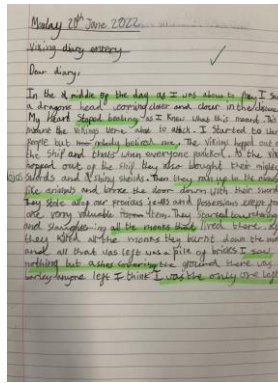 Monday 20th June 2022
Viking diary entery
Dear diary,
In the middle of the day as I was about to pray, I
a dragons head coming closer and closer in the distance
My heart stoped beating as I knew what this meant. This
meant the vikings were about to attack. I started to
people but nobody belived me. The vikings hoped out of
the ship and thats when everyone panicked. As the vikings
hopped out of the ship they also bought their mighty
swords and shiny shields. Then they ran up to the monastery
like animals and broke the door down with their swords
They stole all our precious jewels and possessions except for
one very valuable item. They started
and slaughtering all the monks that lived there.
they killed all the monks they burnt down the
and all that was left was a pile of bricks I saw
nothing but ashes covering the ground there was
barley anyone left I think I was the only one left